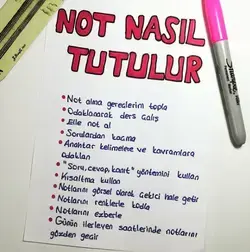 NOT NASIL
TUTULUR
• Not alma gereçlerini topla
• Odaklanarak ders çalış
• Elle not al
• Sorulardan kaçma
• Anahtar kelimelere ve kavramlara
odaklan
• "Soru, cevap, kanıt" yöntemini kullan
• Kısaltma kullan
• Notlarını görsel olarak çekici hale getir
• Notlarını renklerle kodla
• Notlarını ezberle
• Günün ilerleyen saatlerinde notlarını
gözden geçir